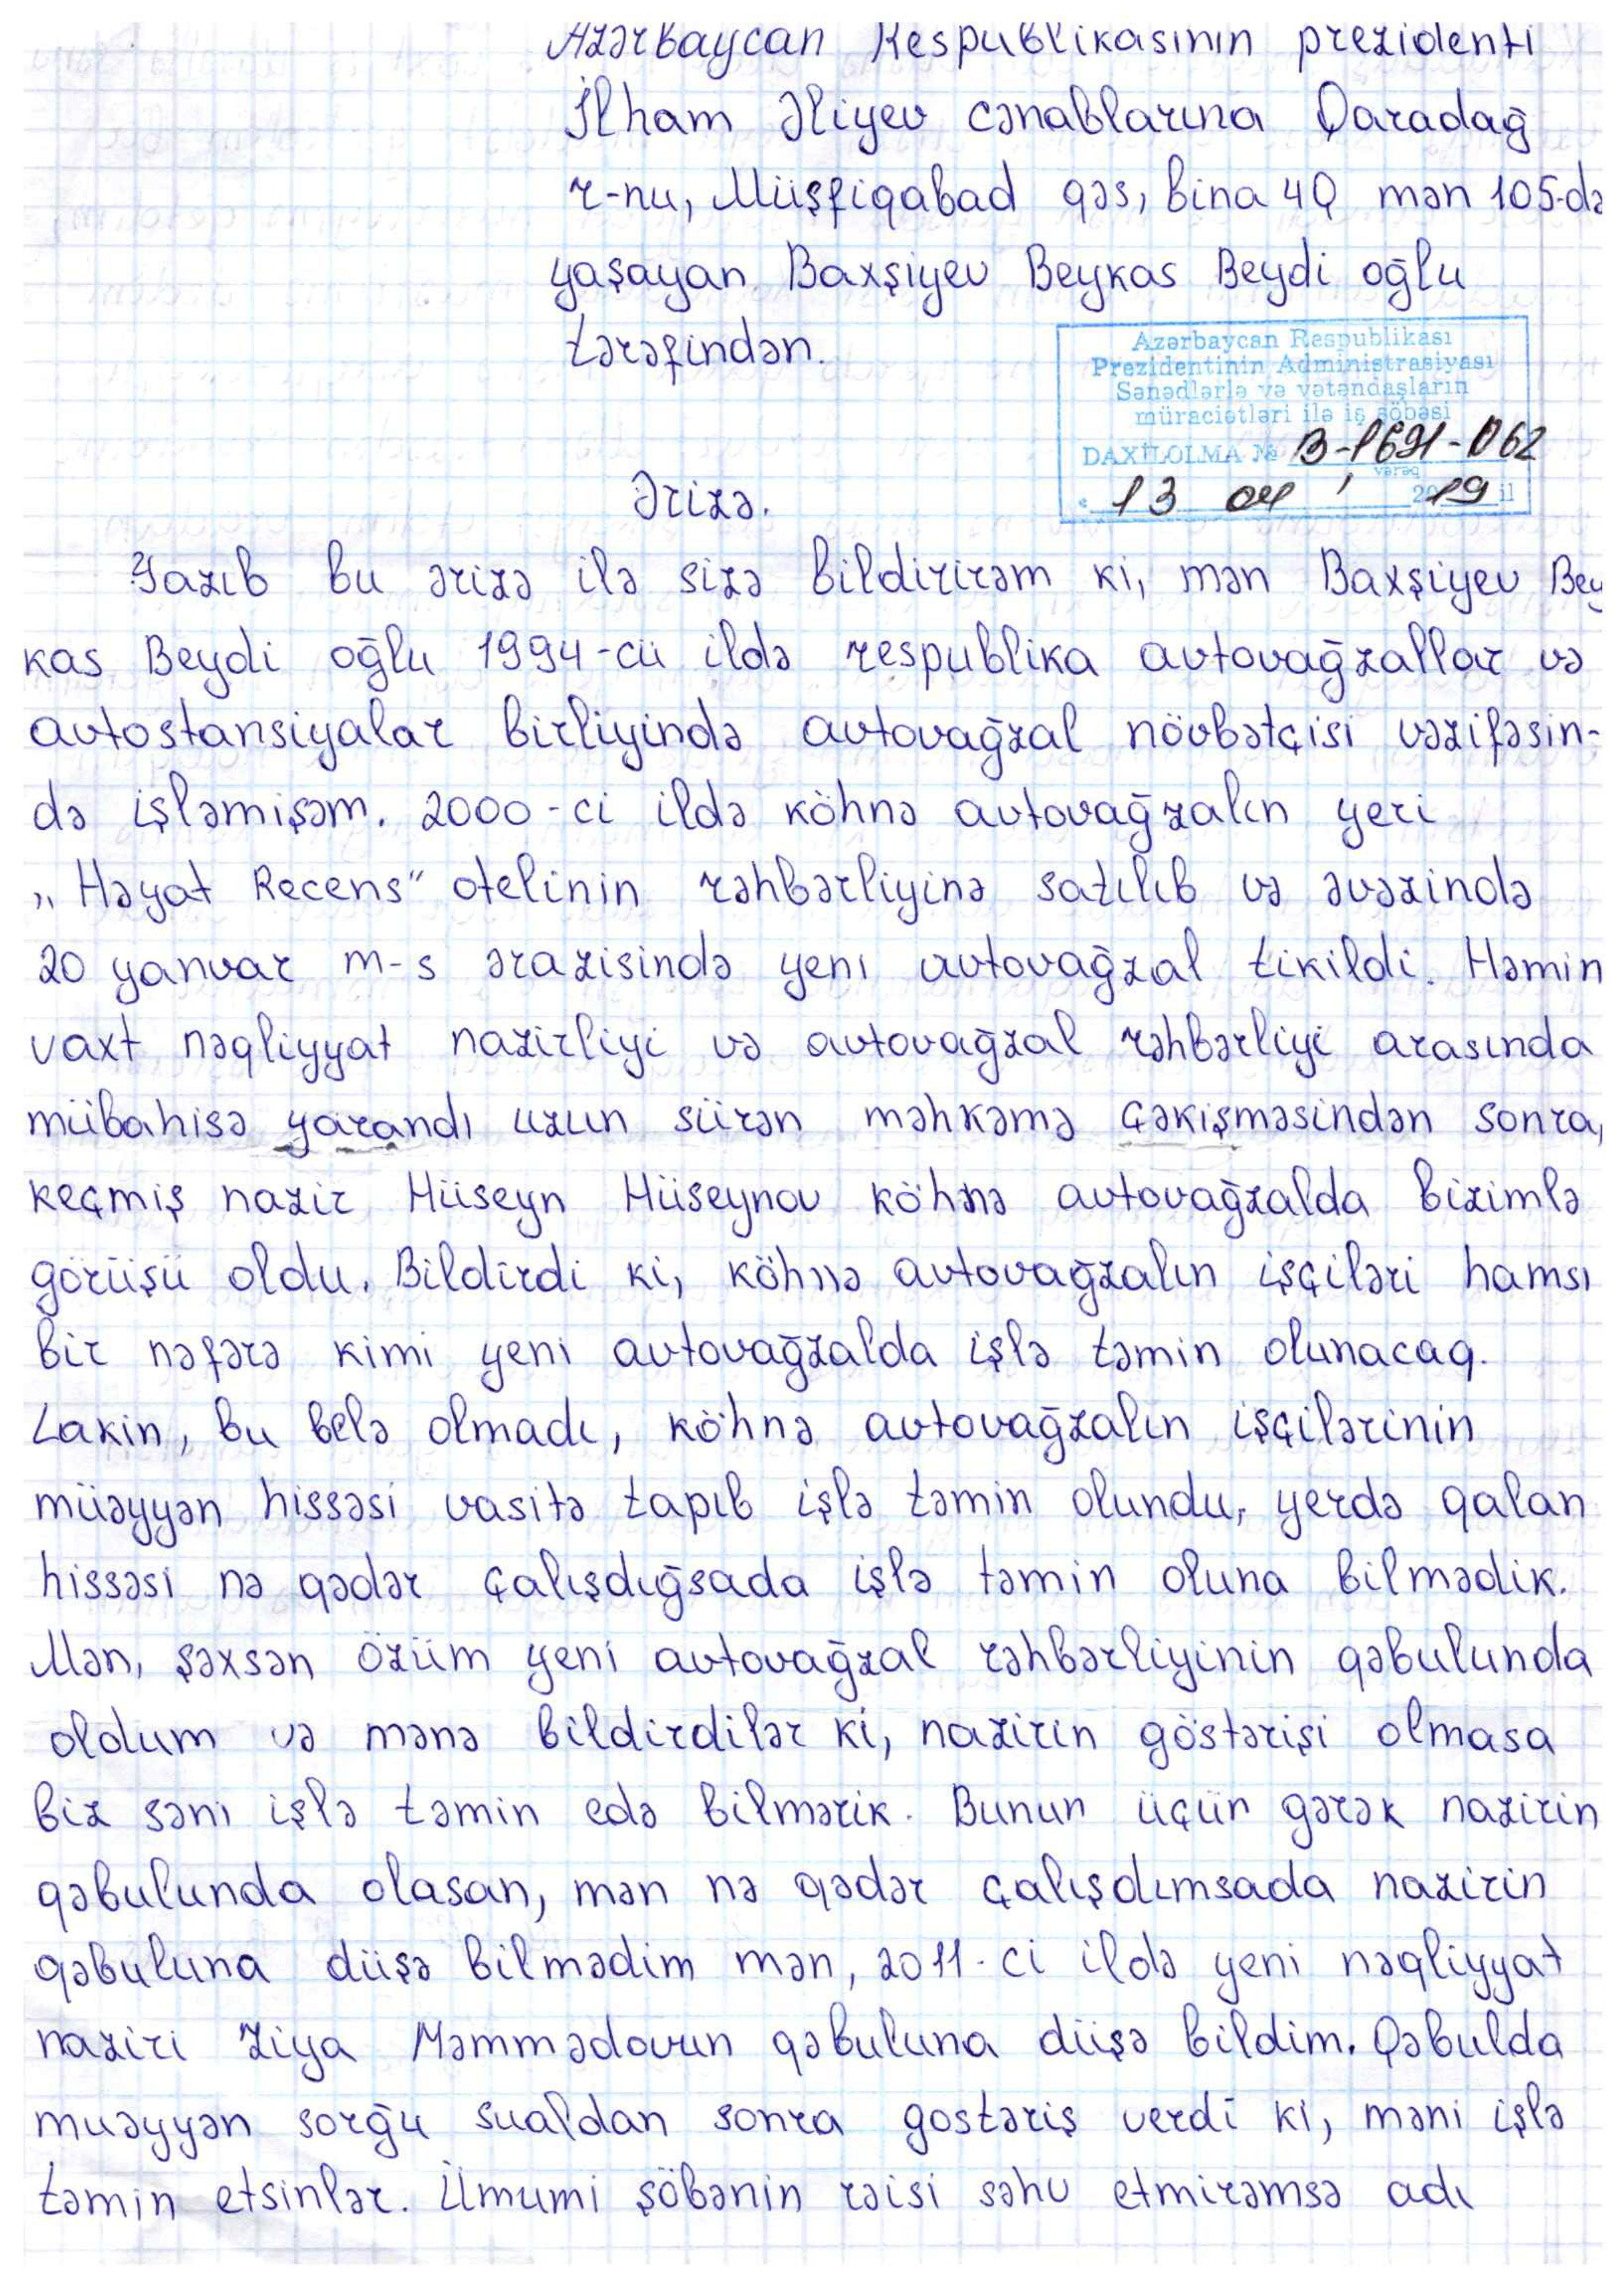 Azərbaycan Respublikasının prezidenti
İlham Əliyev cənablarına Qaradağ
r-nu, Müşfiqabad qəs, bina 4Q mən 105-də
yaşayan Baxşiyev Beykas Beydi oğlu
tərəfindən.
Azərbaycan Respublikası
Prezidentinin Administrasiyası
Sənədlərlə və vətəndaşların
müraciətləri ilə iş şöbəsi
DAXİLOLMA № B-1691-062
vərəq
« 13 04 2019 il
Ərizə.
Yazıb bu ərizə ilə sizə bildirirəm ki, mən Baxşiyev Bey
kas Beydi oğlu 1994-cü ildə respublika avtovağzallar və
avtostansiyalar birliyində avtovağzal növbətçisi vəzifəsin-
də işləmişəm. 2000-ci ildə köhnə avtovağzalın yeri
„Həyat Recens" otelinin rəhbərliyinə satılıb və əvəzində
20 yanvar m-s ərazisində yeni avtovağzal tikildi. Həmin
vaxt nəqliyyat nazirliyi və avtovağzal rəhbərliyi arasında
mübahisə yarandı uzun sürən məhkəmə çəkişməsindən sonra,
keçmiş nazir Hüseyn Hüseynov köhnə avtovağzalda bizimlə
görüşü oldu. Bildirdi ki, köhnə avtovağzalın işçiləri hamsı
bir nəfərə kimi yeni avtovağzalda işlə təmin olunacaq.
Lakin, bu belə olmadı, köhnə avtovağzalın işçilərinin
müəyyən hissəsi vasitə tapıb işlə təmin olundu, yerdə qalan
hissəsi nə qədər çalışdığsada işlə təmin oluna bilmədik.
Mən, şəxsən özüm yeni avtovağzal rəhbərliyinin qəbulunda
oldum və mənə bildirdilər ki, nazirin göstərişi olmasa
biz səni işlə təmin edə bilmərik. Bunun üçün gərək nazirin
qəbulunda olasan, mən nə qədər çalışdımsada nazirin
qəbuluna düşə bilmədim mən, 2011-ci ildə yeni nəqliyyat
naziri Ziya Məmmədovun qəbuluna düşə bildim. Qəbulda
muəyyən sorğu sualdan sonra gostəriş verdi ki, məni işlə
təmin etsinlər. Ümumi şöbənin rəisi səhv etmirəmsə adı